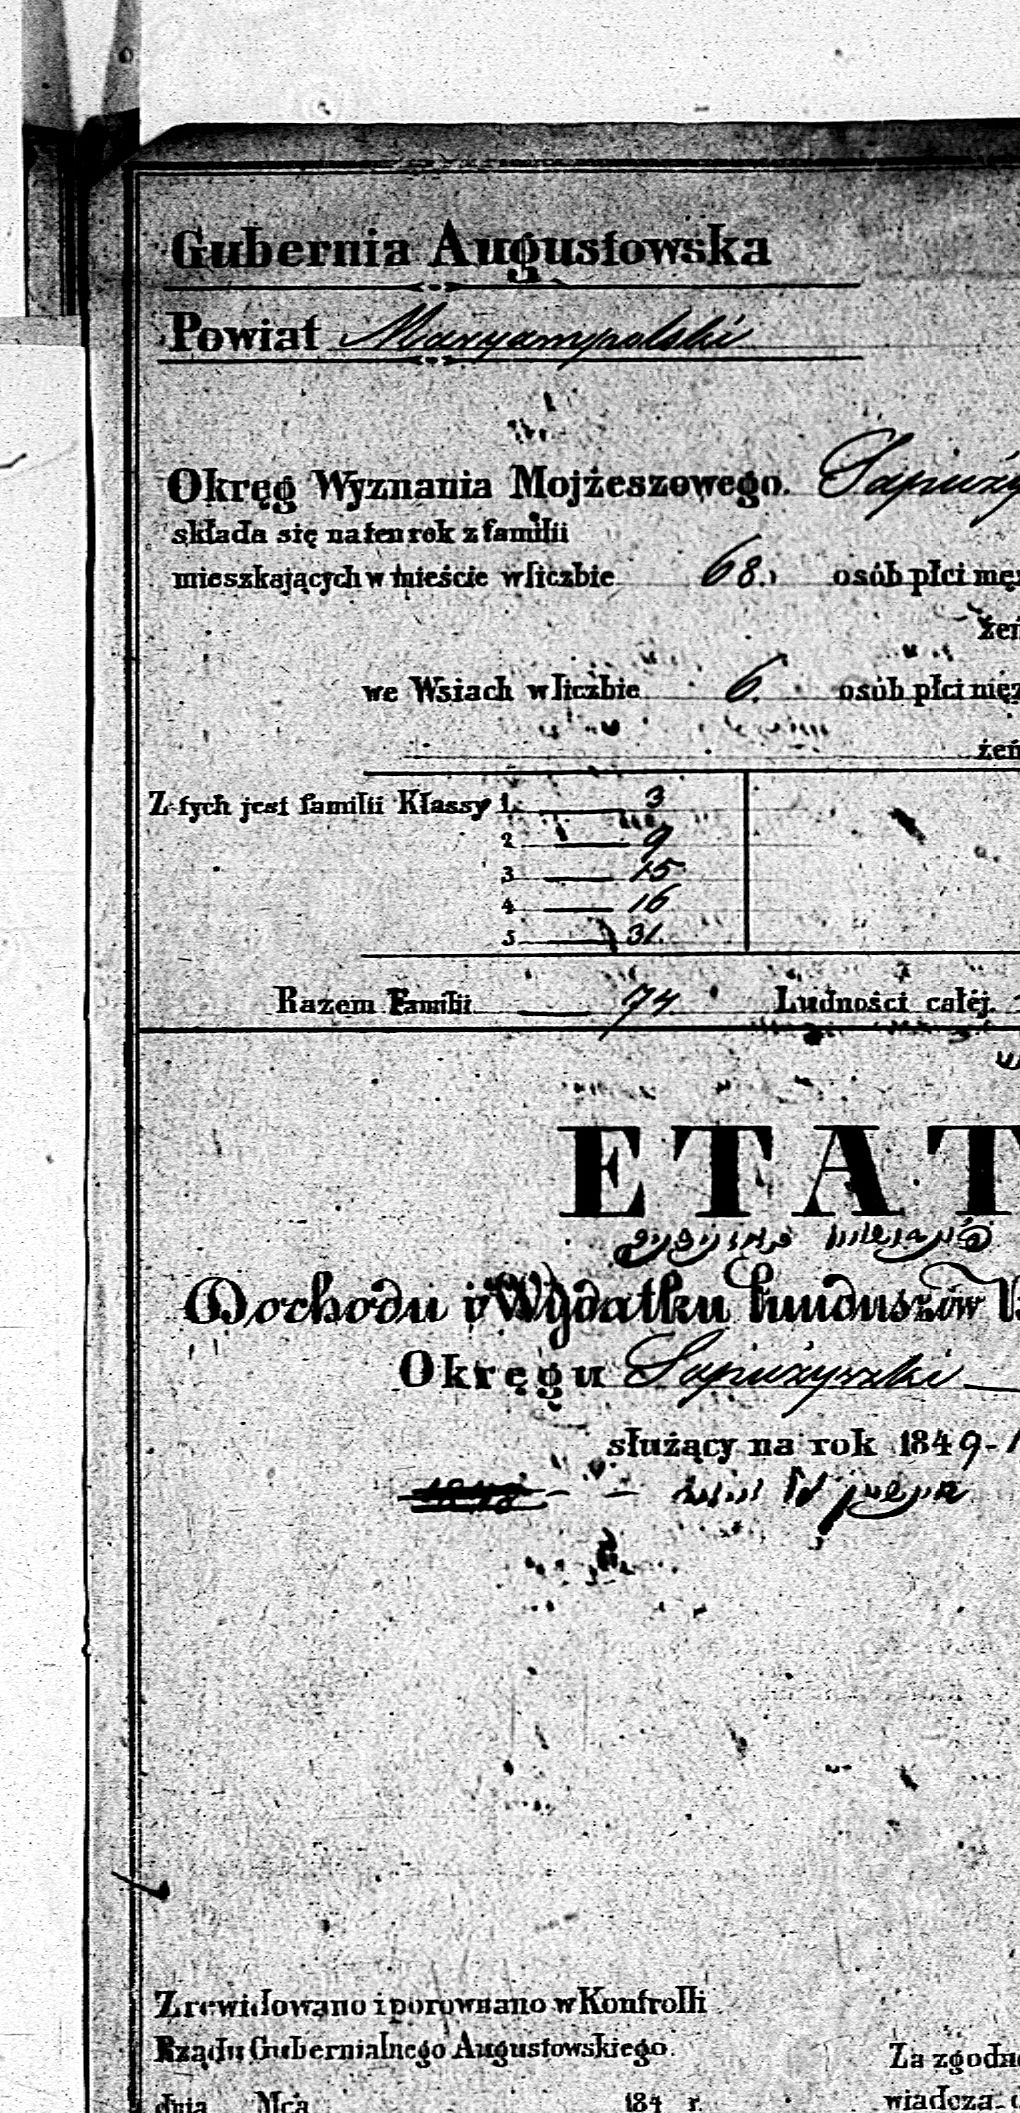 Gubernia Augustowska
Powiat Maryampolski
Okręg Wyznania Mojżeszowego. Sapieży
składa się na ten rok z familii
mieszkających w mieście w liczbie 68. osób płci męz
żeń
we Wsiach w liczbie 6. osób płci męz
żeń
Z tych jest familii Klassy 1. 3
2 9
3 15
4 16
5 31.
Razem Familii 74 Ludności całéj.
ETAT
Dochodu i Wydatku funduszów B
Okręgu Sapieżyszki
służący na rok 1849-1
Zrewidowano i porownano w Kontrolli
Rządu Gubernialnego Augustowskiego.
Za zgodno
dnia Mca 184 r. wiadcza